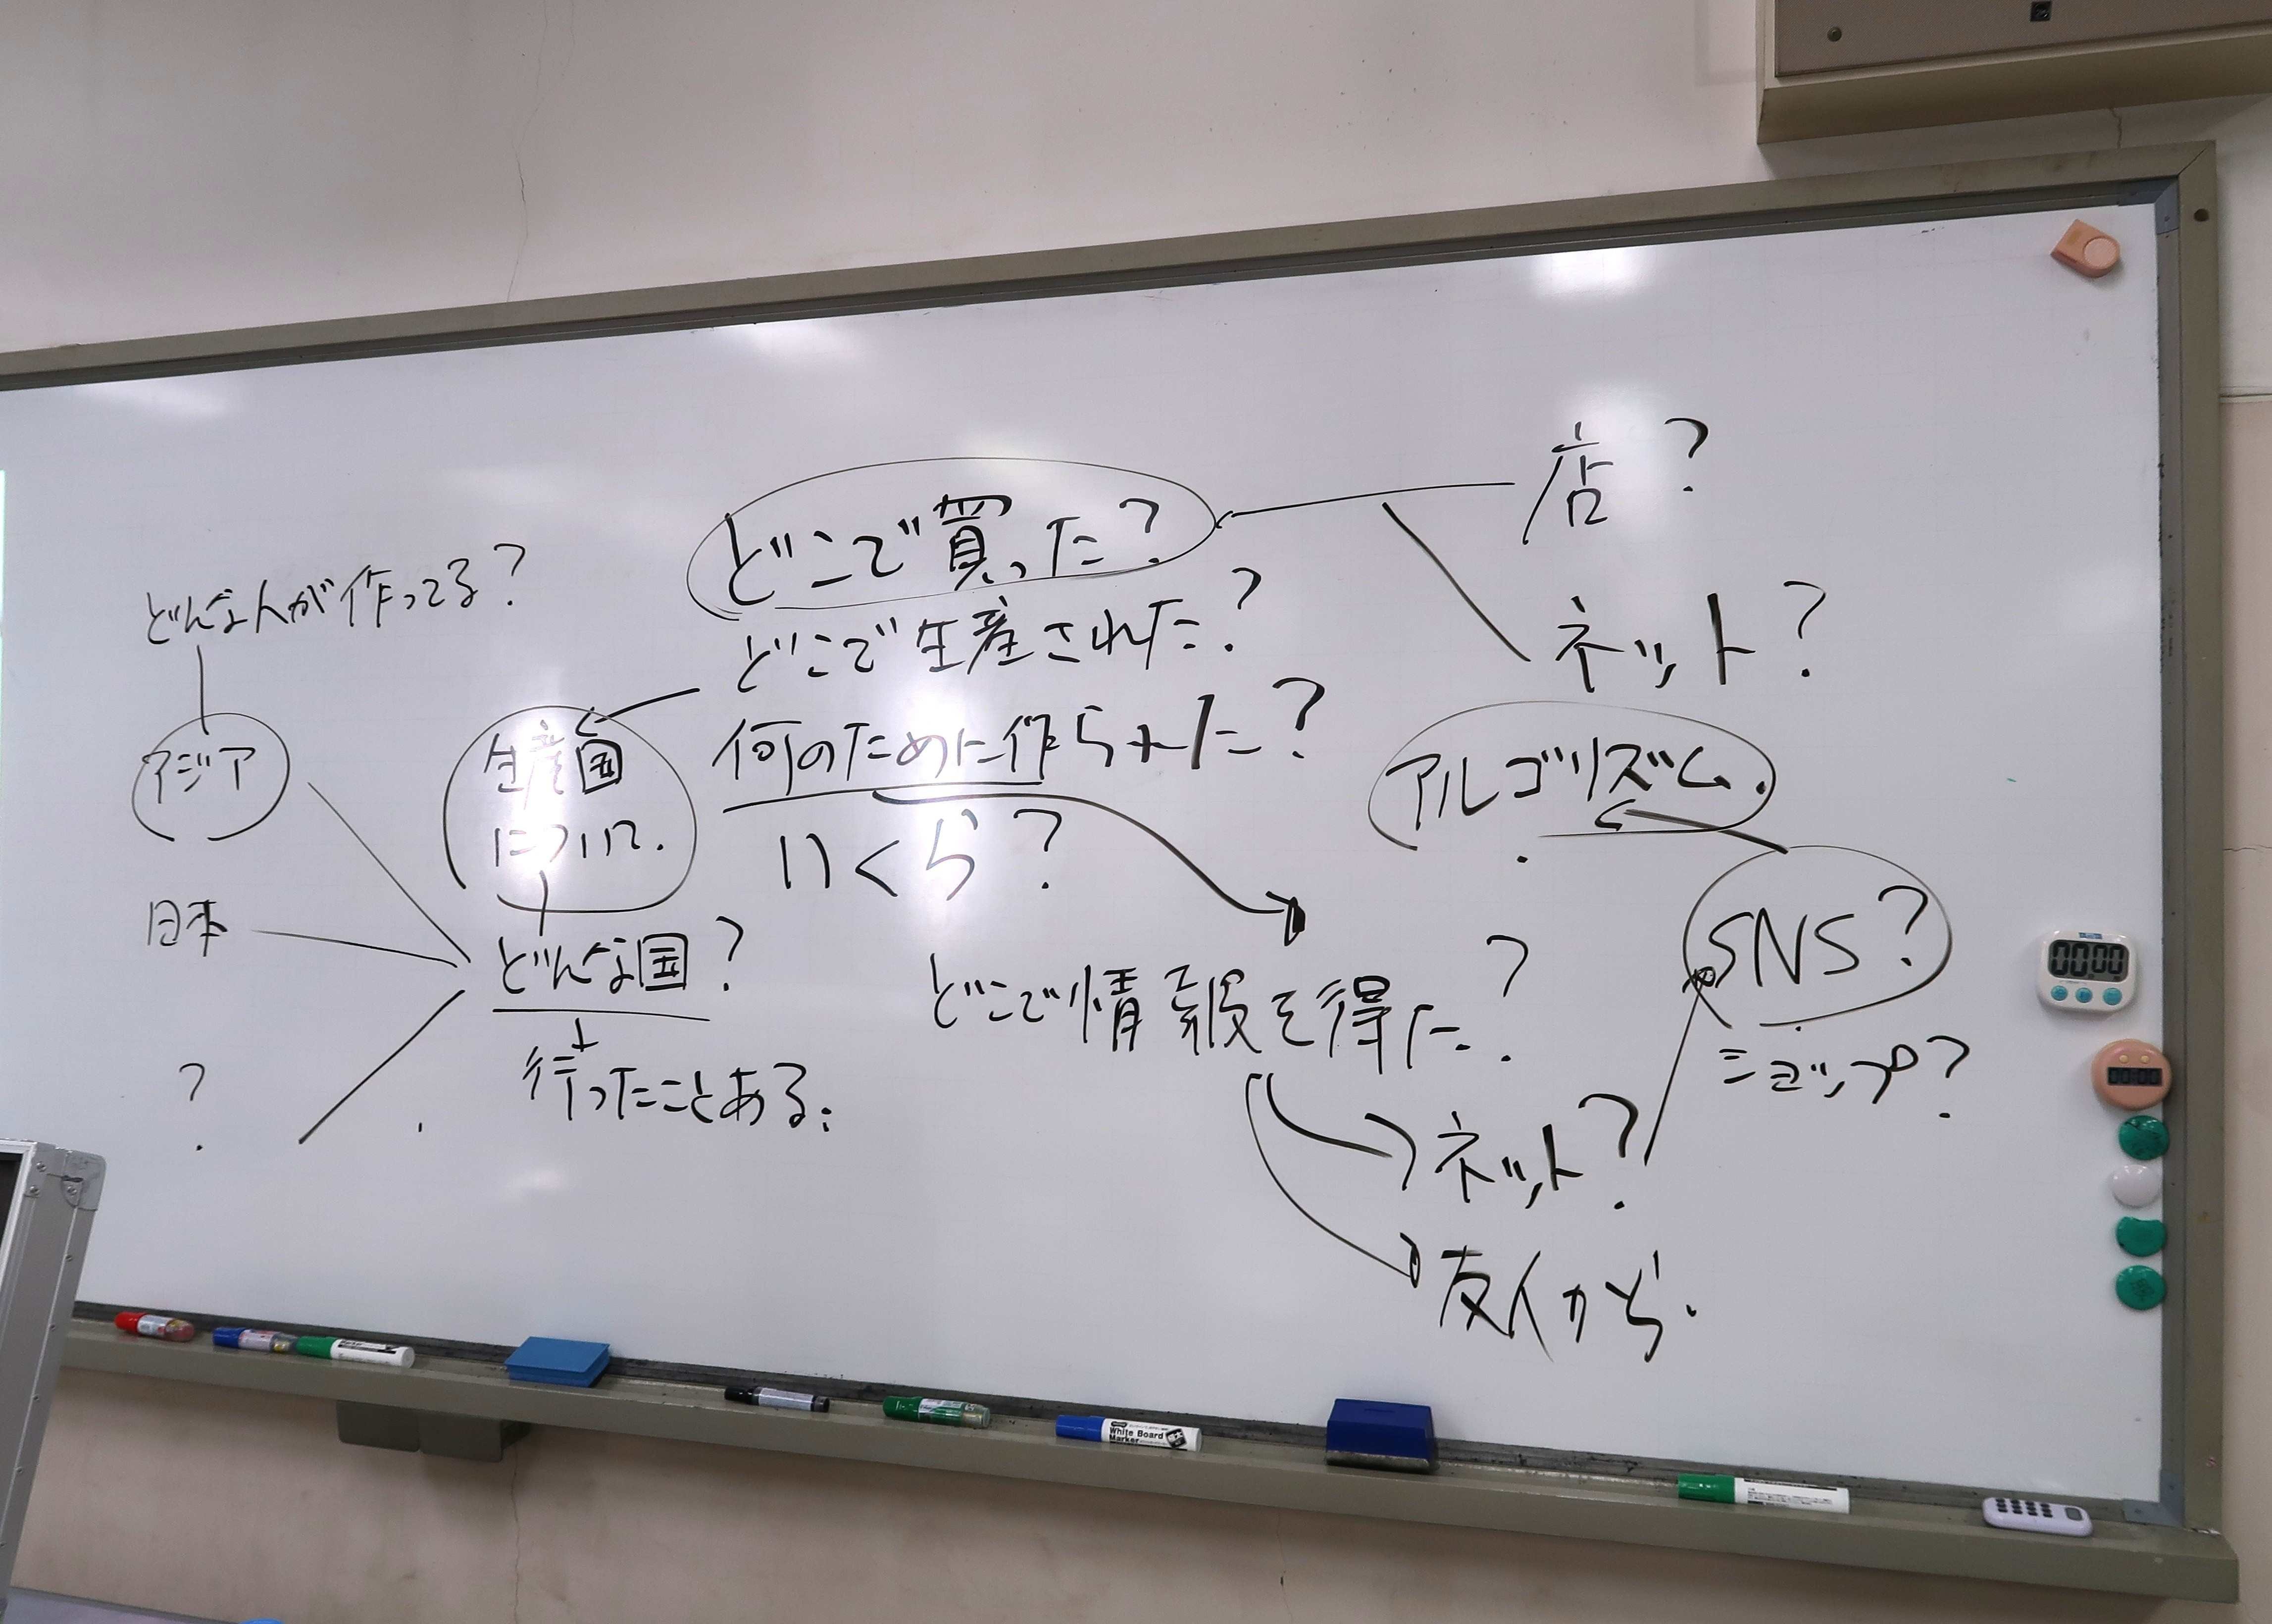 どんな人が作ってる?
アジア
日本
?
生産国
について.
どんな国?
行ったことある.
どこで買った?
どこで生産された?
何のために作られた?
いくら?
店?
ネット?
アルゴリズム.
SNS?
ショップ?
どこで情報を得た?
ネット?
友人から.
00:00
00:00
White Board
Marker